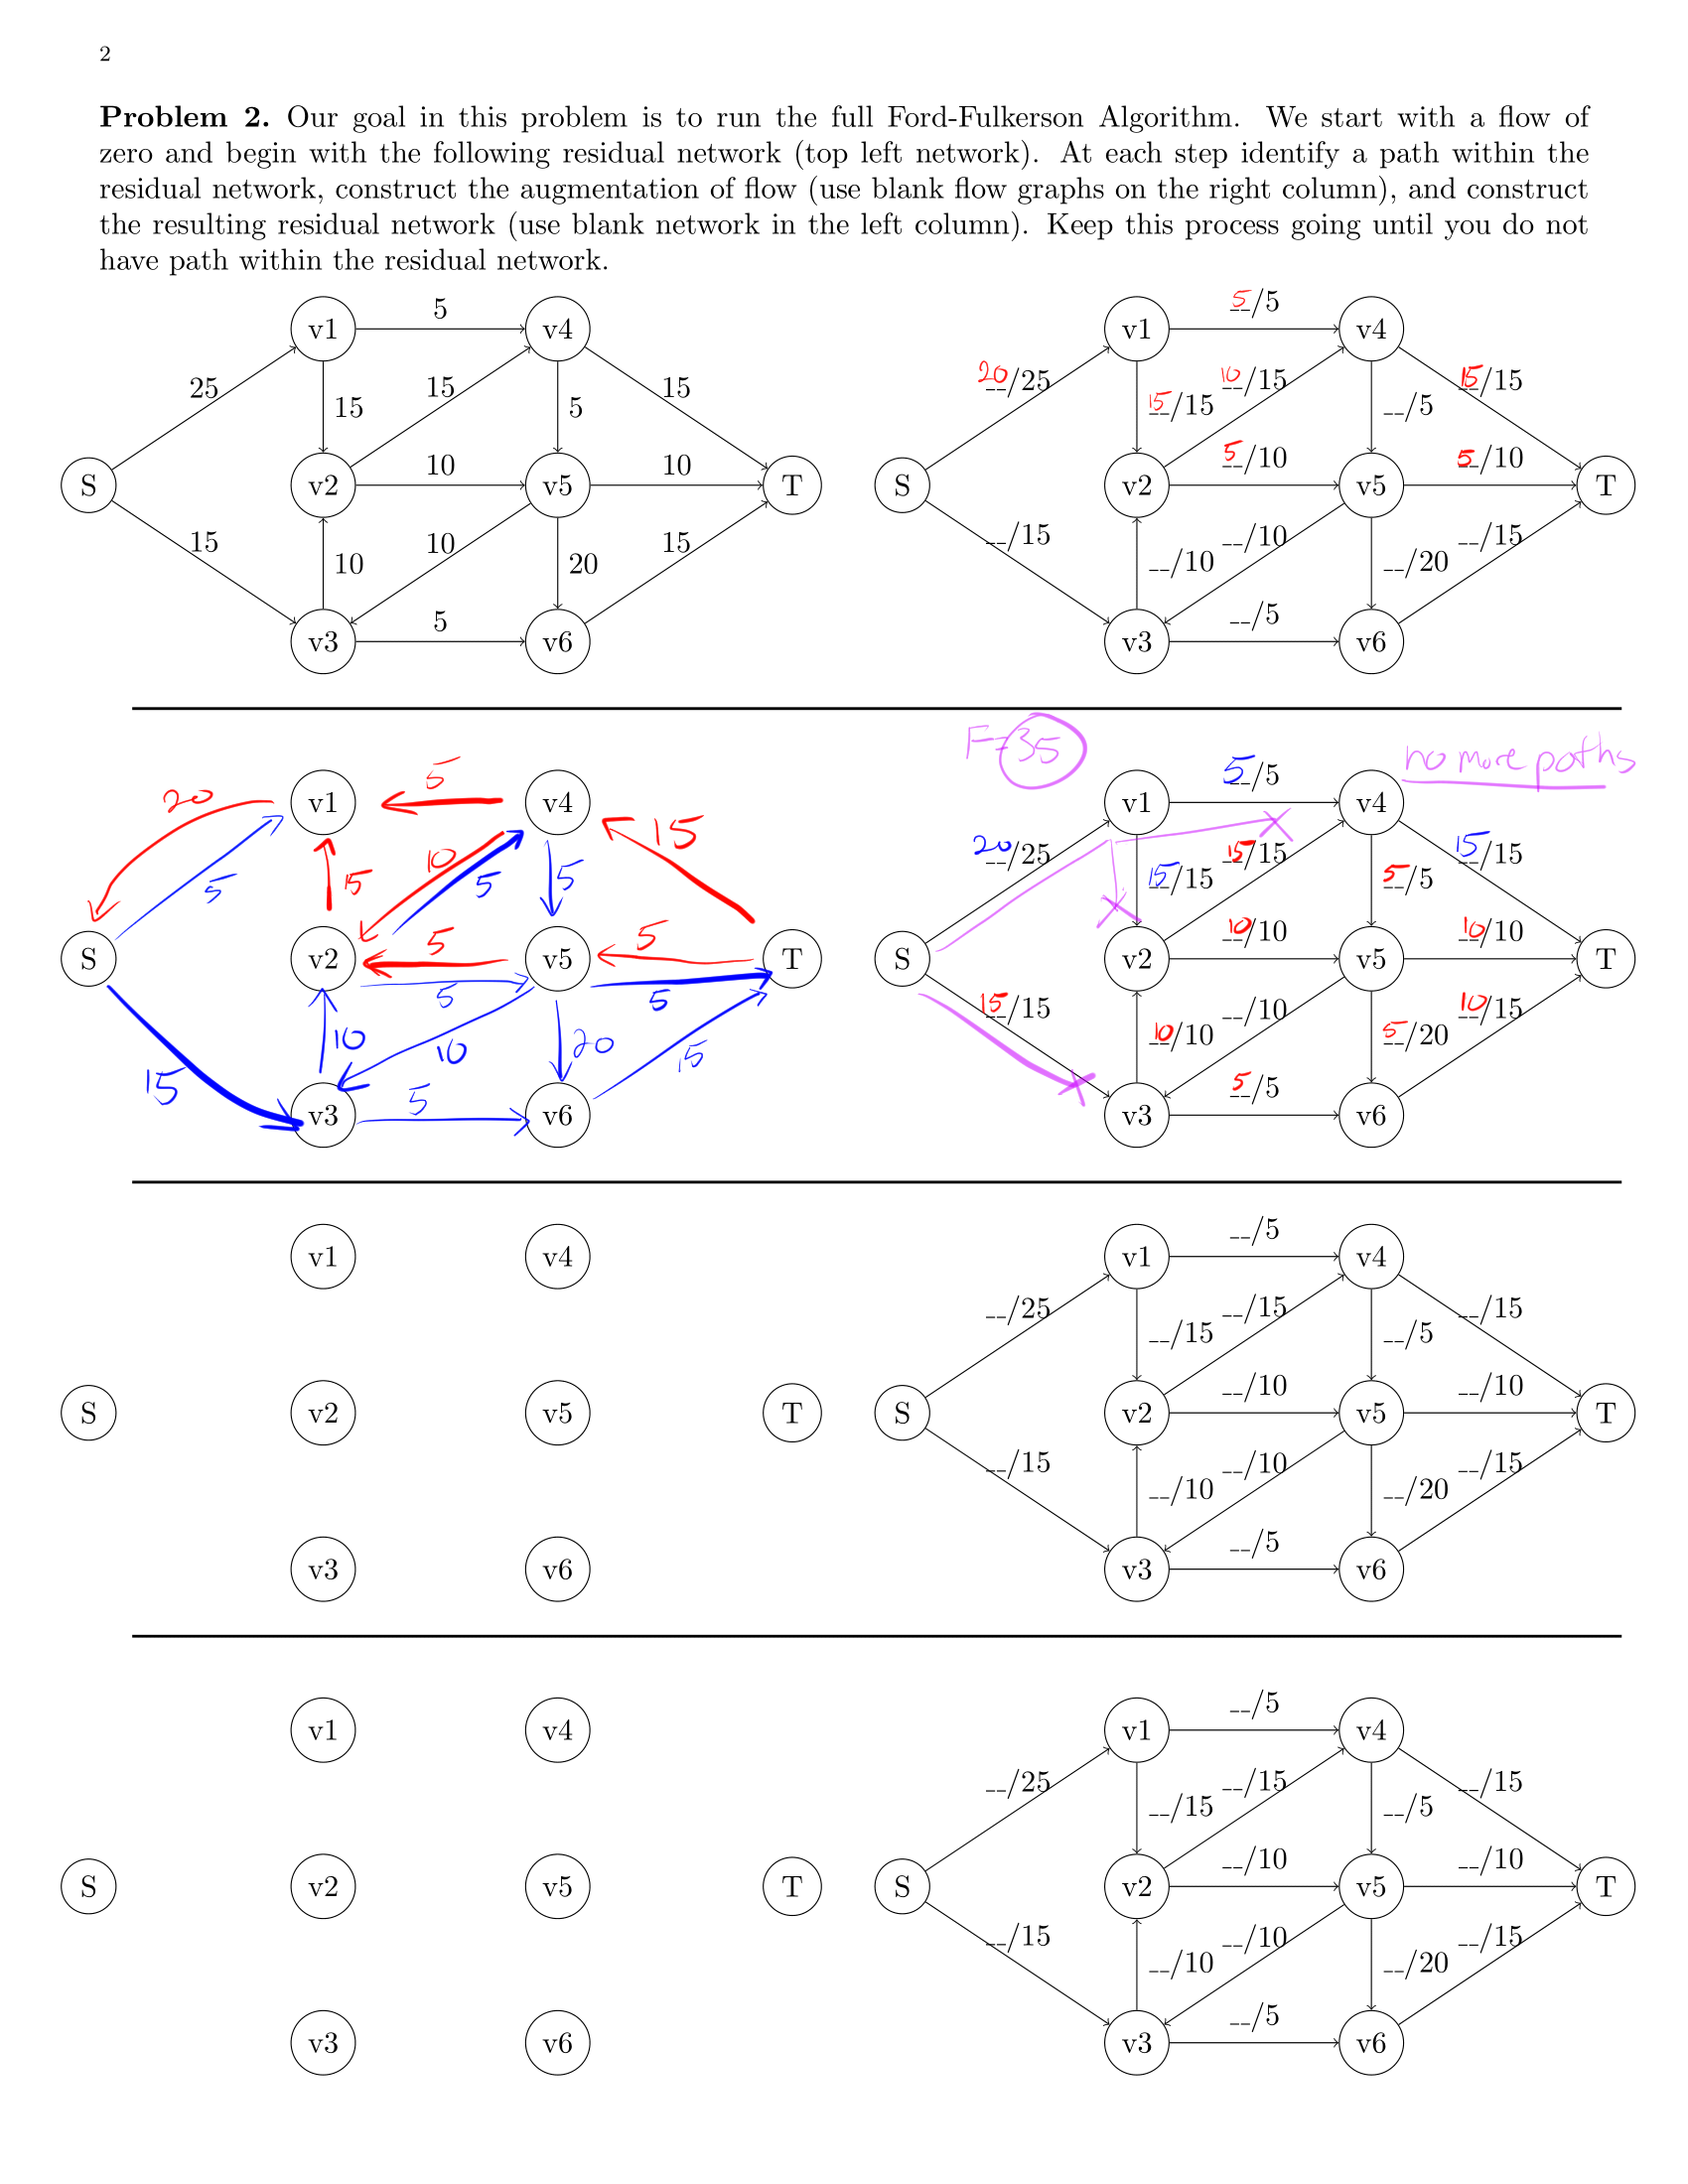 2
Problem 2. Our goal in this problem is to run the full Ford-Fulkerson Algorithm. We start with a flow of
zero and begin with the following residual network (top left network). At each step identify a path within the
residual network, construct the augmentation of flow (use blank flow graphs on the right column), and construct
the resulting residual network (use blank network in the left column). Keep this process going until you do not
have path within the residual network.
5
v1 v4
25 15 15 15 5
10 10
S v2 v5 T
15 10 10 20 15
5
v3 v6
5__/5
v1 v4
20__/25 15__/15 10__/15 __/5 15__/15
5__/10 5__/10
S v2 v5 T
__/15 __/10 __/10 __/20 __/15
__/5
v3 v6
20 5
v1 v4
5 15 10 5 5 15
5 5
S v2 v5 T
5 5
15 10 10 20 15
5
v3 v6
F=35 no more paths
5__/5
v1 v4
20__/25 15__/15 15__/15 5__/5 15__/15
10__/10 10__/10
S v2 v5 T
15__/15 10__/10 __/10 5__/20 10__/15
5__/5
v3 v6
v1 v4
S v2 v5 T
v3 v6
__/5
v1 v4
__/25 __/15 __/15 __/5 __/15
__/10 __/10
S v2 v5 T
__/15 __/10 __/10 __/20 __/15
__/5
v3 v6
v1 v4
S v2 v5 T
v3 v6
__/5
v1 v4
__/25 __/15 __/15 __/5 __/15
__/10 __/10
S v2 v5 T
__/15 __/10 __/10 __/20 __/15
__/5
v3 v6